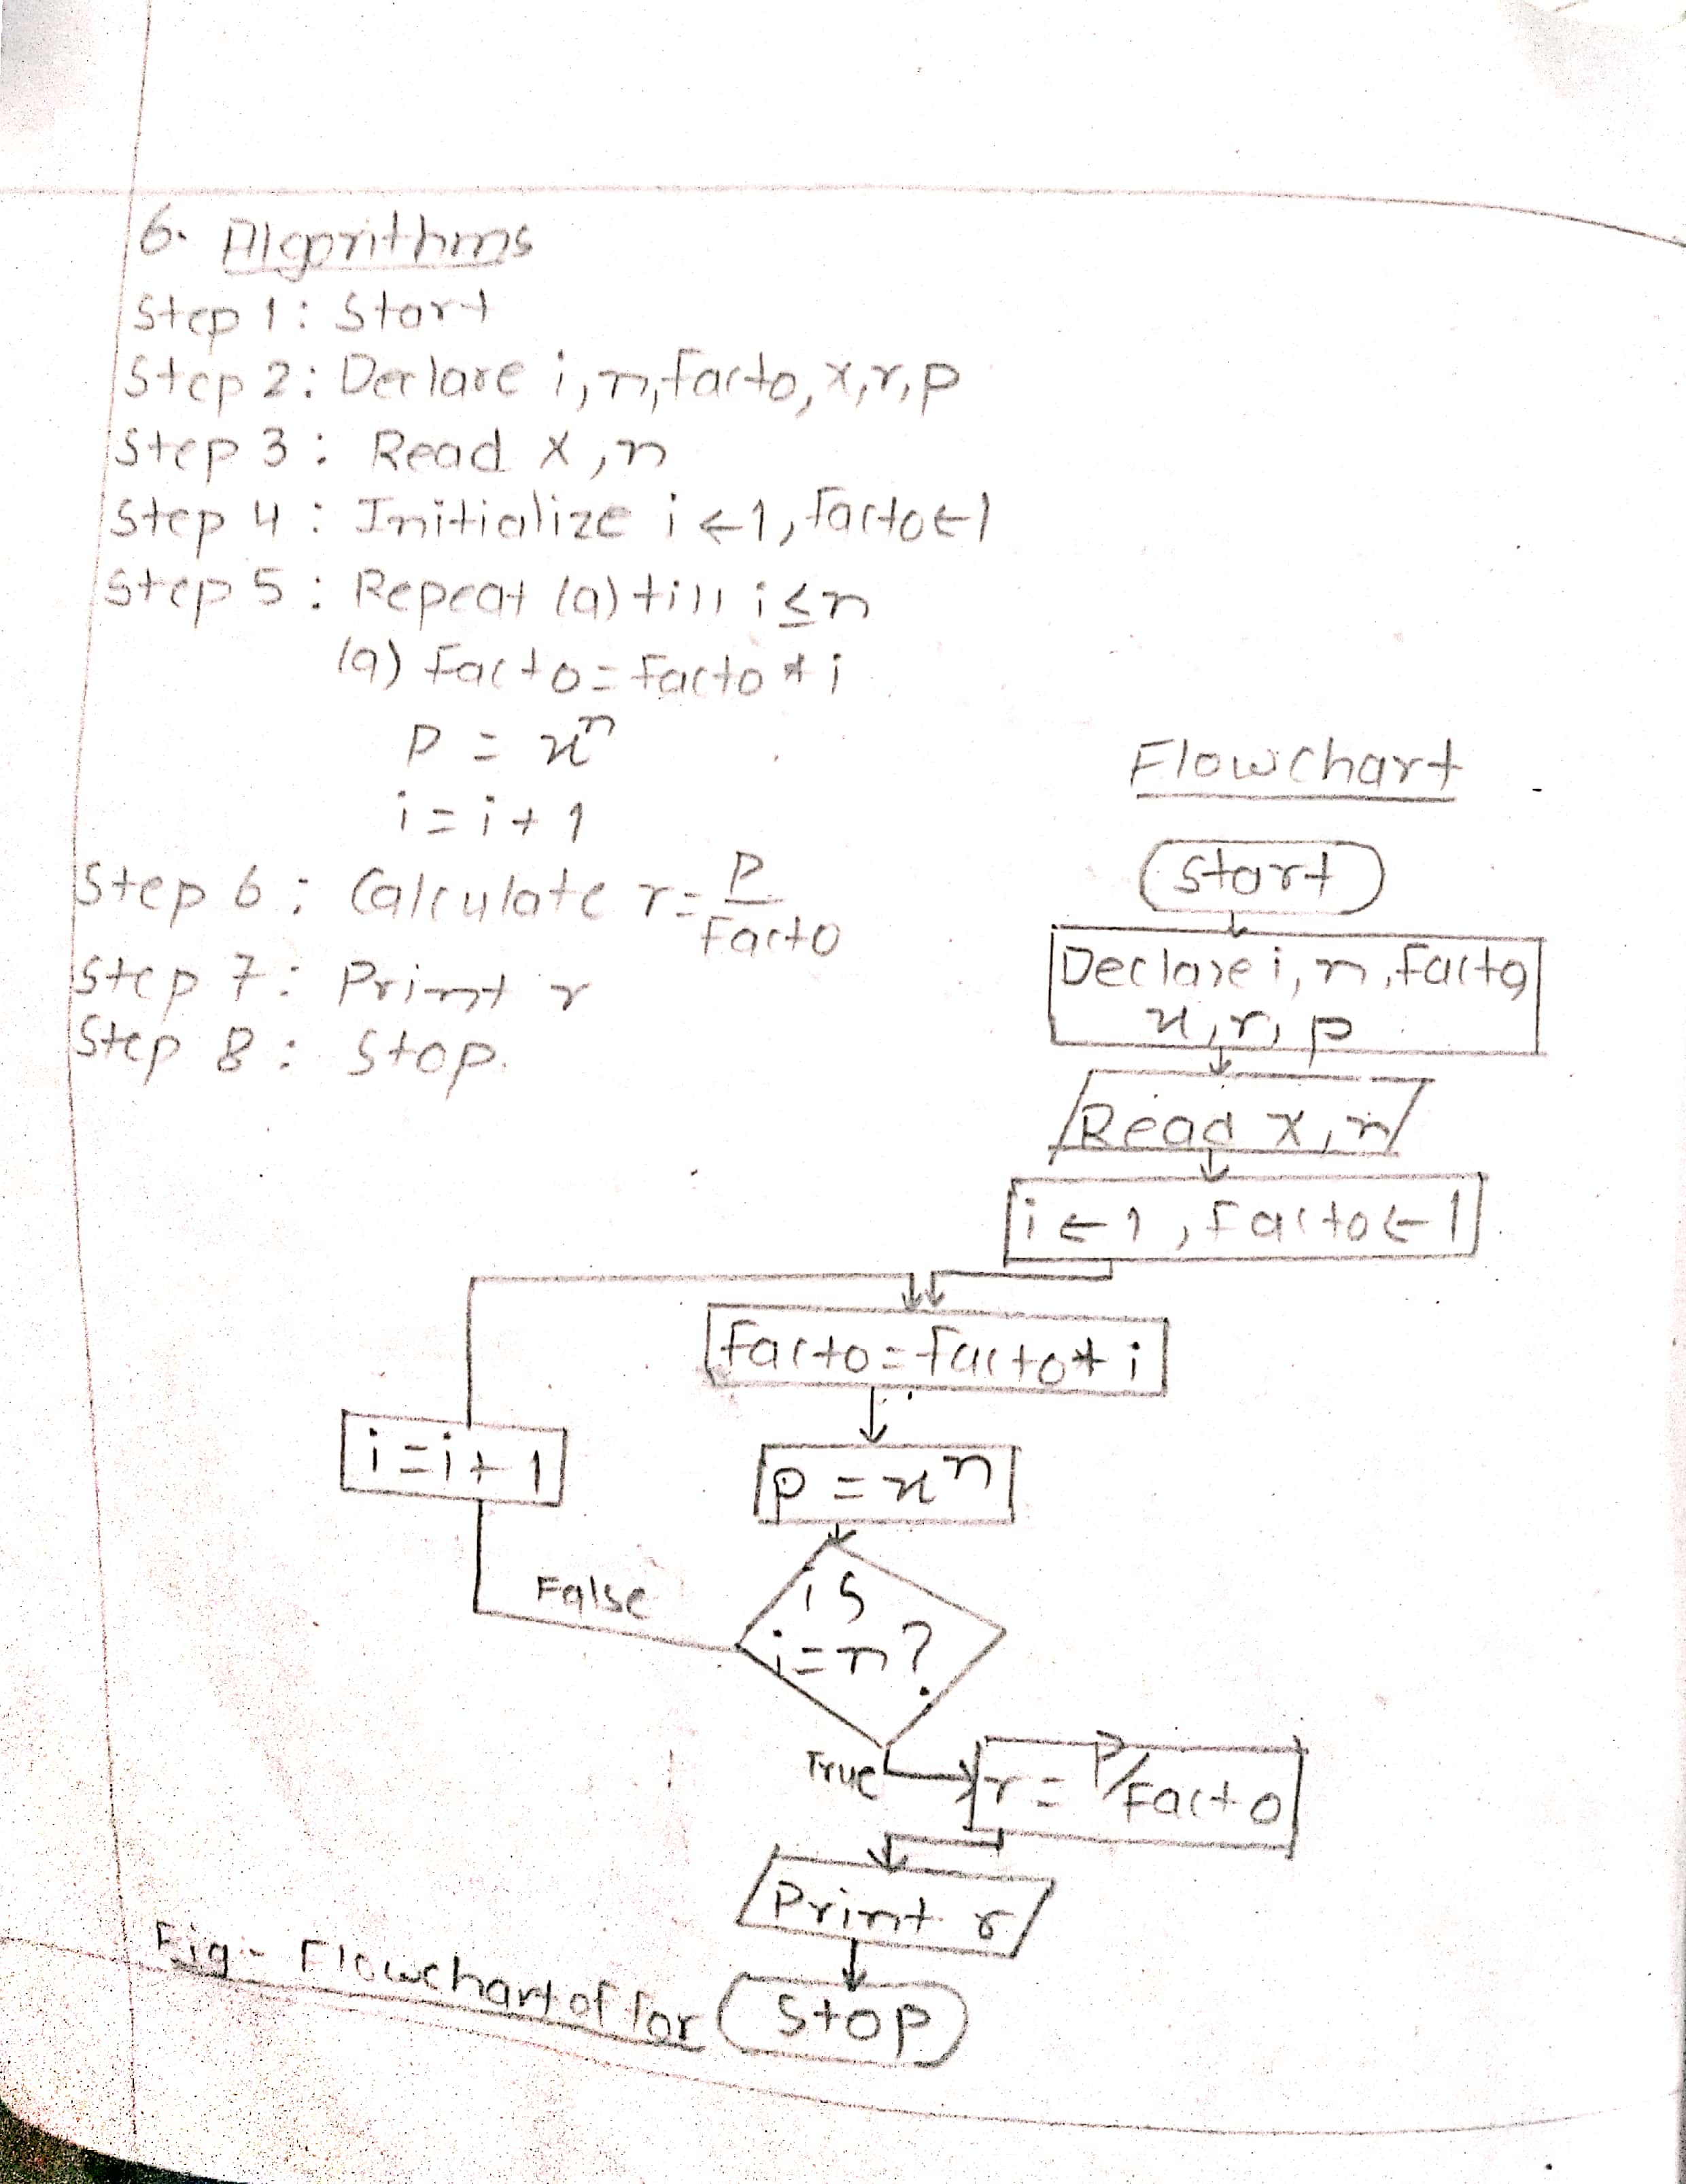 6. Algorithms
Step 1: Start
Step 2: Declare i, n, facto, x, r, p
Step 3: Read x, n
Step 4: Initialize i ← 1, facto ← 1
Step 5: Repeat (a) till i ≤ n
(a) facto = facto * i
P = xⁿ
i = i + 1
Step 6: Calculate r = P/Facto
Step 7: Print r
Step 8: Stop.
Flowchart
Start
Declare i, n, facto
x, r, p
Read x, n
i ← 1, facto ← 1
facto = facto * i
i = i + 1
p = xⁿ
False
is
i = n?
True
r = P/Facto
Print r
Stop
Fig:- Flowchart of for